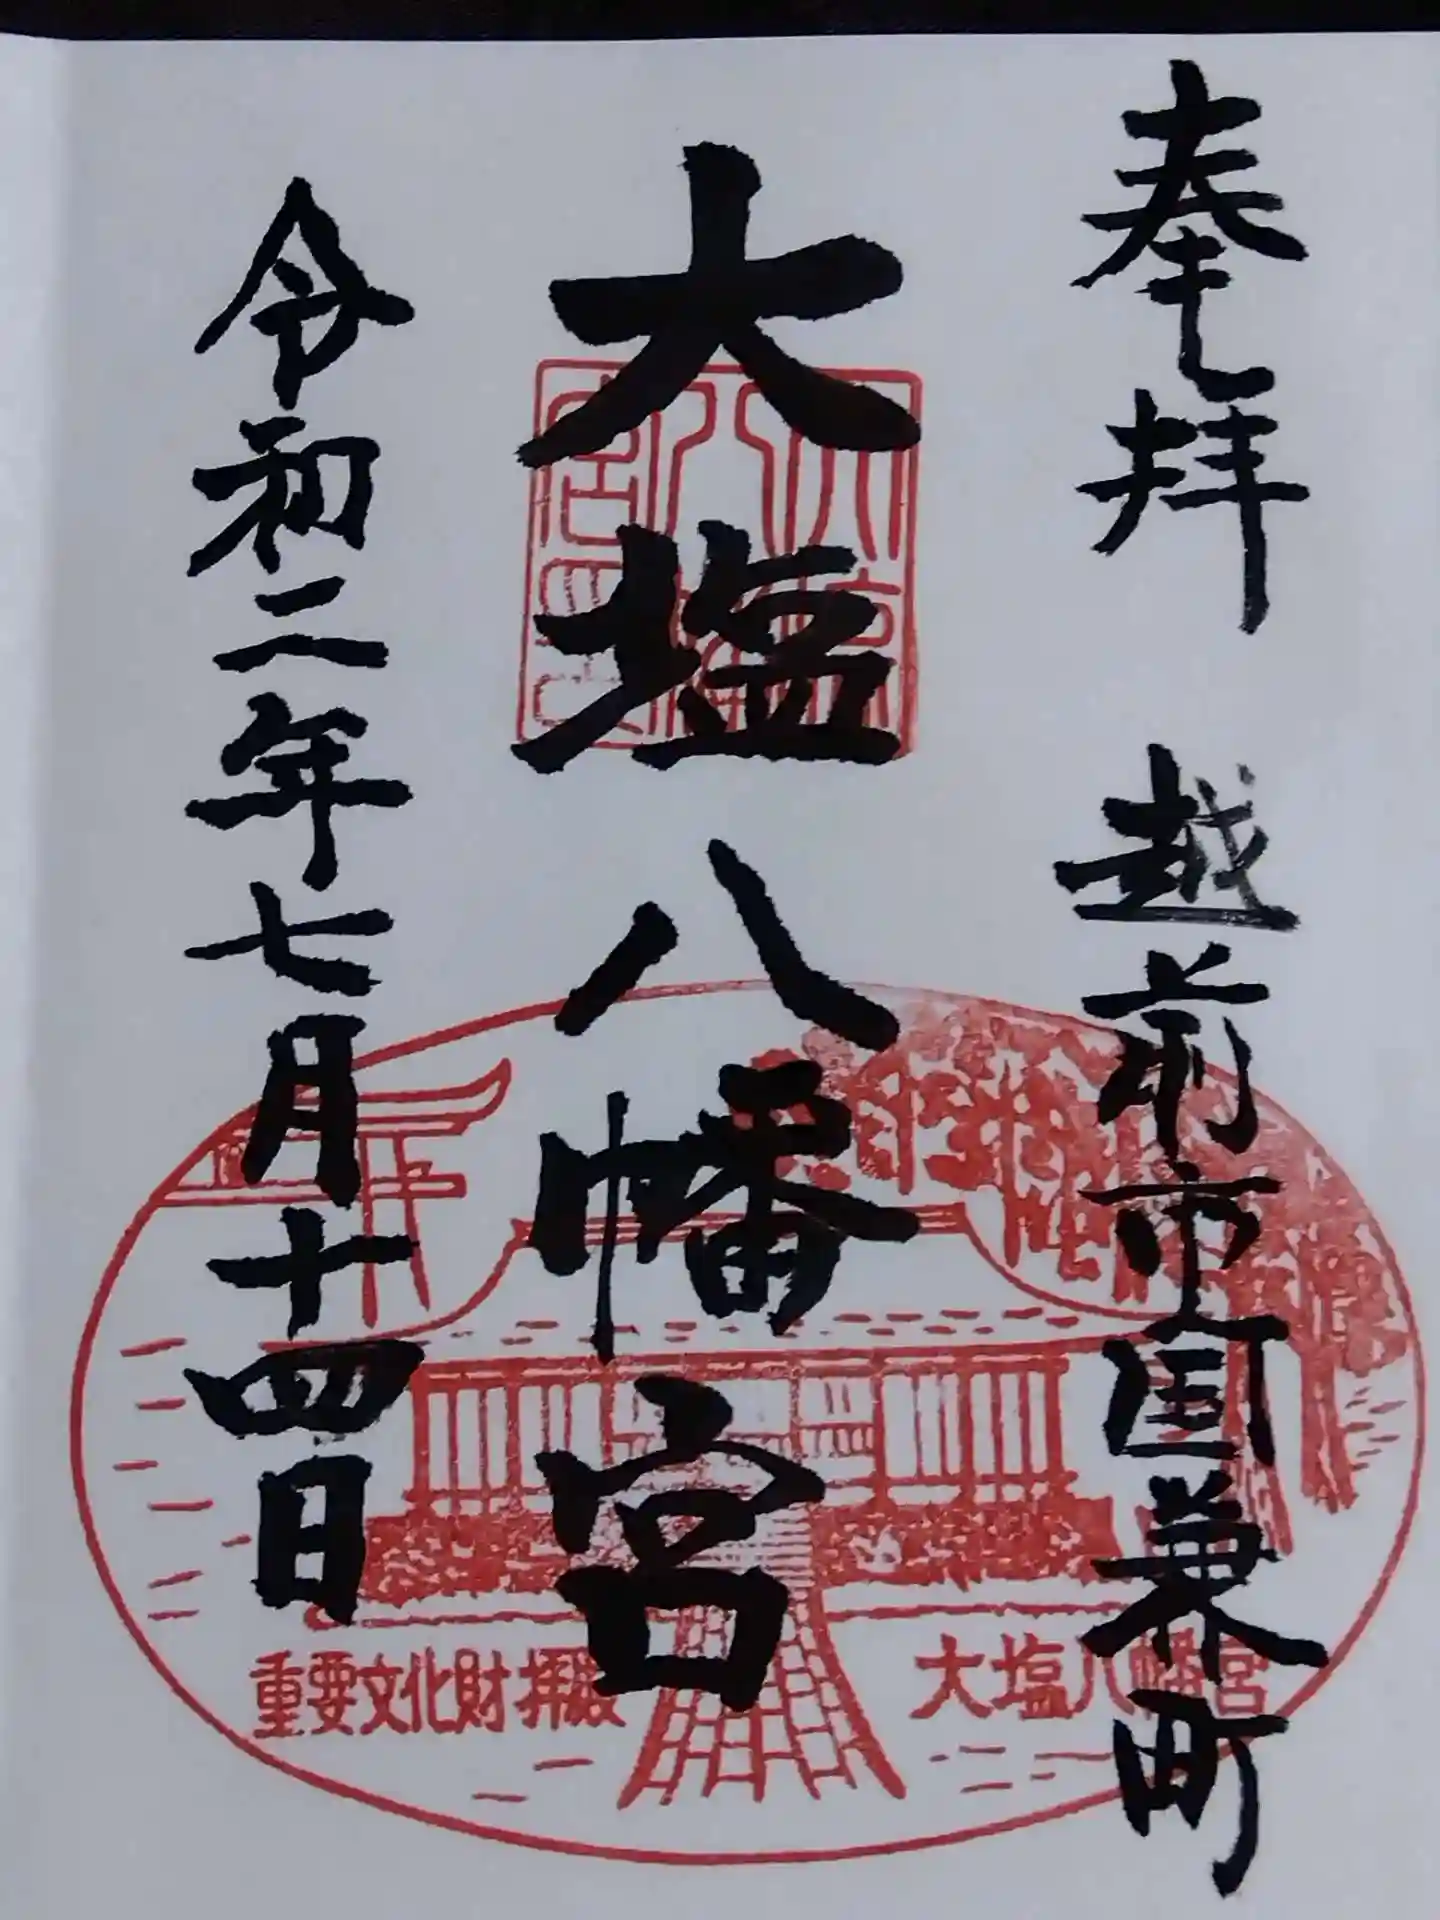 奉拝 越前市国兼町
大塩八幡宮
令和二年七月十四日
重要文化財 拝殿
大塩八幡宮